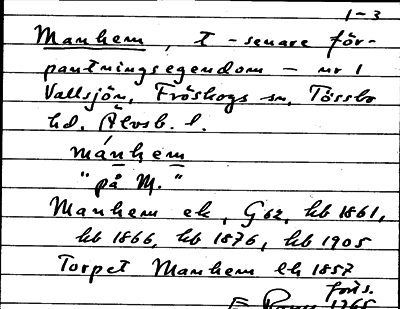 1-3
Manhem, t - senare för-
pantningsegendom - nr 1
Vallsjön, Fröskogs sn, Tössbo
hd. Älvsb. l.
mánhem
"på M."
Manhem ek, G 62, hb 1861,
hb 1866, hb 1876, hb 1905
Torpet Manhem lk 1857
forts.
1965